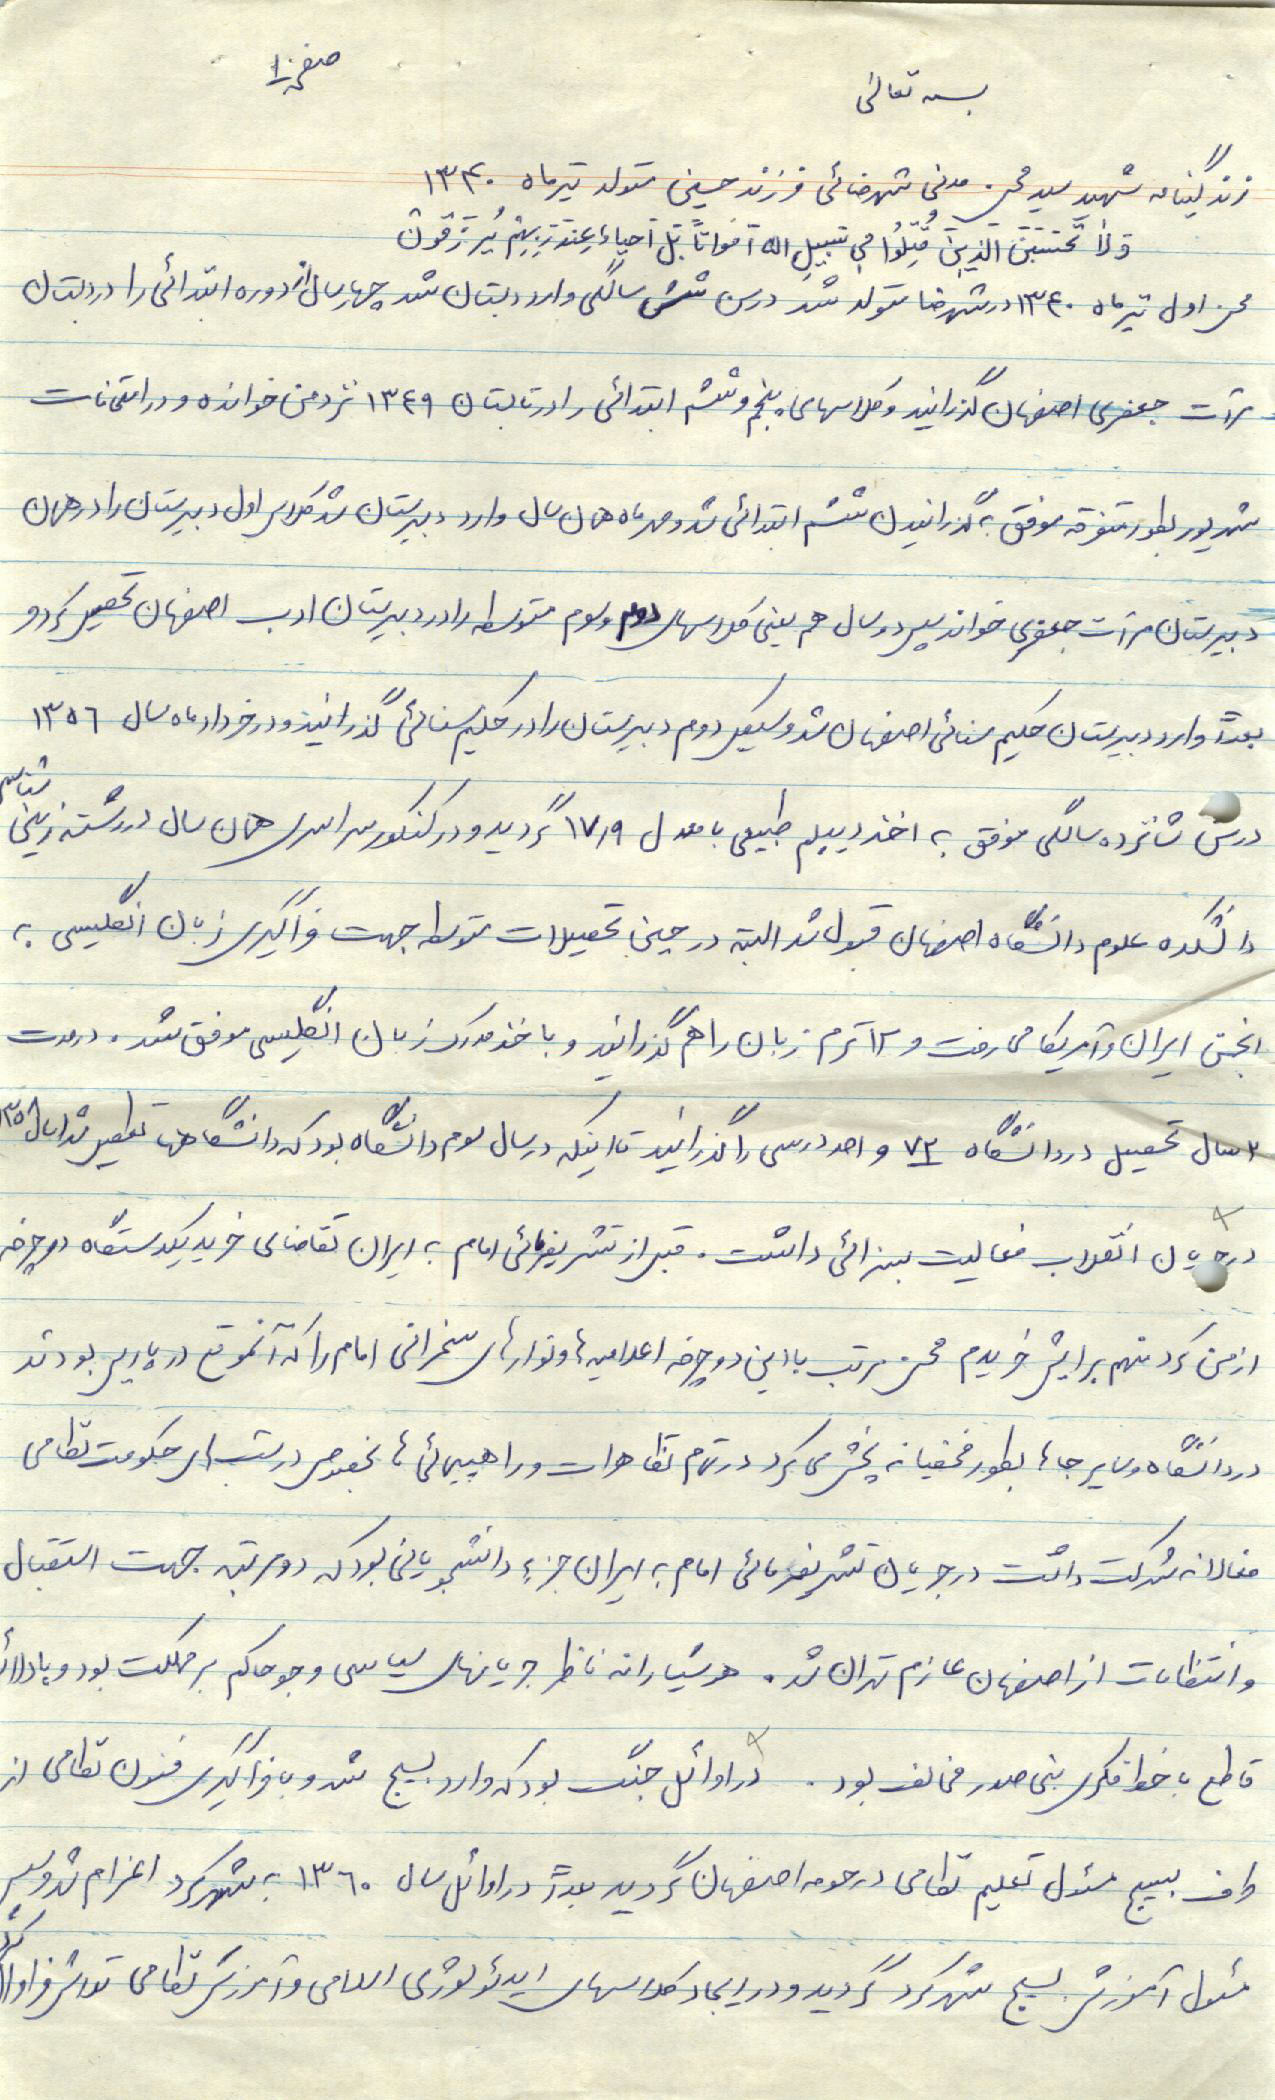 صفحه ۱
بسمه تعالی
زندگینامه شهید سید محسن مدنی شهرضائی فرزند حسین متولد تیرماه ۱۳۴۰
وَلا تَحسَبَنَّ الَّذینَ قُتِلُوا فی سَبیلِ الله اَمواتاً بَل اَحیاءٌ عِندَ رَبِهِم یُرزَقون
محسن اول تیرماه ۱۳۴۰ در شهرضا متولد شد در سن شش سالگی وارد دبستان شد چهار سال از دوره ابتدائی را در دبستان
مرآت جعفری اصفهان گذرانید و کلاسهای پنجم و ششم ابتدائی را در تابستان ۱۳۴۹ نزد من خوانده و در امتحانات
شهریور بطور متفرقه موفق به گذرانیدن ششم ابتدائی شد و مهرماه همان سال وارد دبیرستان شد کلاس اول دبیرستان را در همان
دبیرستان مرآت جعفری خواند سپس دو سال هم یعنی کلاسهای دوم و سوم متوسطه را در دبیرستان ادب اصفهان تحصیل کرد و
بعداً وارد دبیرستان حکیم سنائی اصفهان شد و سیکل دوم دبیرستان را در حکیم سنائی گذرانید و در خرداد ماه سال ۱۳۵۶
در سن شانزده سالگی موفق به اخذ دیپلم طبیعی با معدل ۱۷٫۹ گردید و در کنکور سراسری همان سال در رشته زمین شناسی
دانشکده علوم دانشگاه اصفهان قبول شد البته در حین تحصیلات متوسطه جهت فراگیری زبان انگلیسی به
انجمن ایران و آمریکا می رفت و ۱۲ ترم زبان را هم گذرانید و با خذ مدرک زبان انگلیسی موفق شد. در مدت
۳ سال تحصیل در دانشگاه ۷۲ واحد درسی را گذرانید تا اینکه در سال سوم دانشگاه بود که دانشگاهها تعطیل شد
در جریان انقلاب فعالیت بسزائی داشت. قبل از تشریفرمائی امام به ایران تقاضای خرید یکدستگاه دوچرخه
از من کرد منهم برایش خریدم محسن مرتب با این دوچرخه اعلامیه ها و نوارهای سخنرانی امام را که آنموقع در پاریس بودند
در دانشگاه و سایر جاها بطور مخفیانه پخش می کرد در تمام تظاهرات و راهپیمائی ها بخصوص در شبهای حکومت نظامی
فعالانه شرکت داشت در جریان تشریفرمائی امام به ایران جزء دانشجویانی بود که دو مرتبه جهت استقبال
و انتظامات از اصفهان عازم تهران شد. هوشیارانه ناظر جریانهای سیاسی و جو حاکم بر مملکت بود و با دلائل
قاطع با خط فکری بنی صدر مخالف بود. در اوائل جنگ بود که وارد بسیج شد و با فراگیری فنون نظامی از
طرف بسیج مسئول تعلیم نظامی در حومه اصفهان گردید بعداً در اوائل سال ۱۳۶۰ به شهرکرد اعزام شد و سپس
مسئول آموزش بسیج شهرکرد گردید و در ایجاد کلاسهای ایدئولوژی اسلامی و آموزش نظامی تلاش فراوان کرد